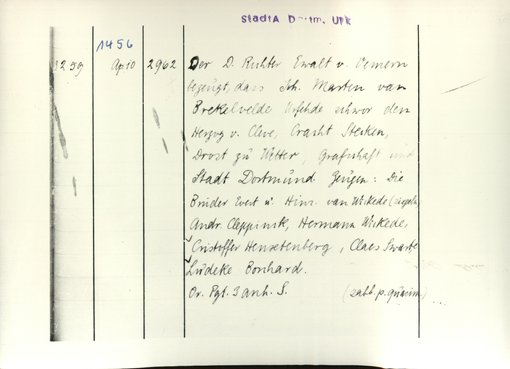 StadtA Dortm. Urk
1456
1239 Ap 10 2962 Der D. Richter Ewalt v. Oemern
bezeugt, dass Joh. Marten van
Brekelvelde Urfehde schwor dem
Herzog v. Cleve, Cracht Stecken,
Drost zu Wetter, Grafschaft und
Stadt Dortmund Zeugen: Die
Brüder Evert u. Hinr. van Wickede
Andr. Cleppinck, Hermann Wickede,
Cristoffer Hensetenberg, Claes Swarte
Lüdeke Bonhard.
Or. Pgt. 3 anh. S.